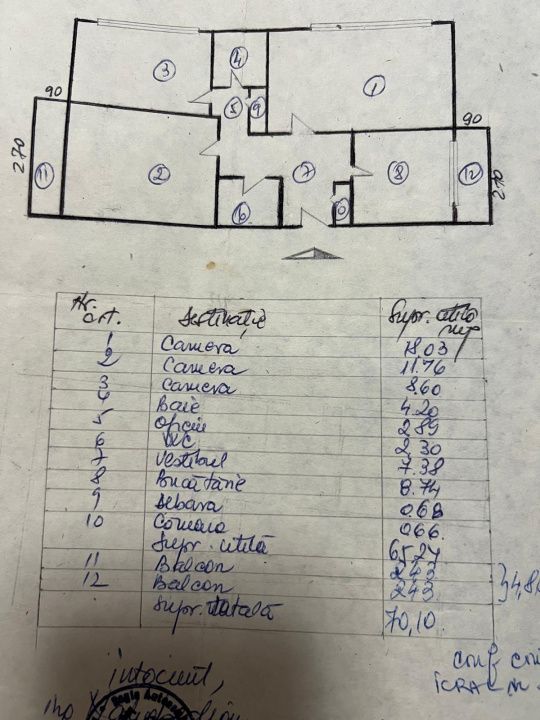 4
3
1
90
5
9
90
270
11
2
7
8
12
270
6
10
Nr. crt. Destinație Supr. utilă mp
1 Camera 18,03
2 Camera 11.76
3 Camera 8.60
4 Baie 4.20
5 Oficiu 2.89
6 WC 2.30
7 Vestibul 7.38
8 Bucătărie 8.74
9 Debara 0.68
10 Camara 0.66
Supr. utilă 65,24
11 Balcon 2.43
12 Balcon 2.43 } 4,86
Supr. totală 70,10.
întocmit,
conf. cu
ICRAL